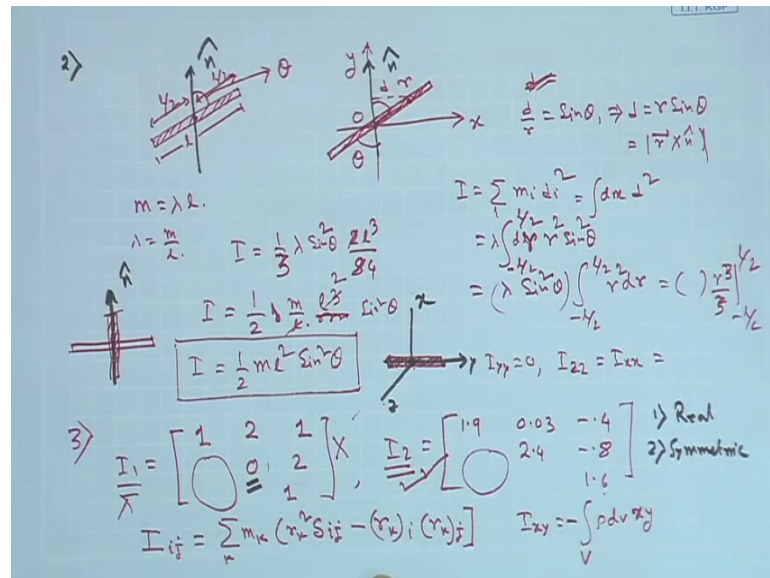 I.I.T. KGP
2)
n̂
L/2
L/2
θ
l
y
n̂
d
r
O
θ
x
d/r = Sinθ, ⇒ d = r Sinθ
= |r⃗ × n̂|
m = λl.
λ = m/l.
I = Σ_i m_i d_i² = ∫dm d²
= λ ∫_{-L/2}^{L/2} dr r² sin²θ
= (λ Sin²θ) ∫_{-L/2}^{L/2} r² dr = ( ) r³/3 |_{-L/2}^{L/2}
I = 1/3 λ Sin²θ 2l³/84
n̂
I = 1/2 m/l. Sin²θ
I = 1/2 ml² Sin²θ
x
y
z
I_yy = 0, I_zz = I_xx =
3)
I_1 = [ 1 2 1
0 2
1 ] X, I_2 = [ 1.9 0.03 -.4
2.4 -.8
1.6 ]
1) Real
2) Symmetric
I_ij = Σ_k m_k (r_k² δ_ij - (r_k)_i (r_k)_j ] I_xy = -∫_V ρdv xy